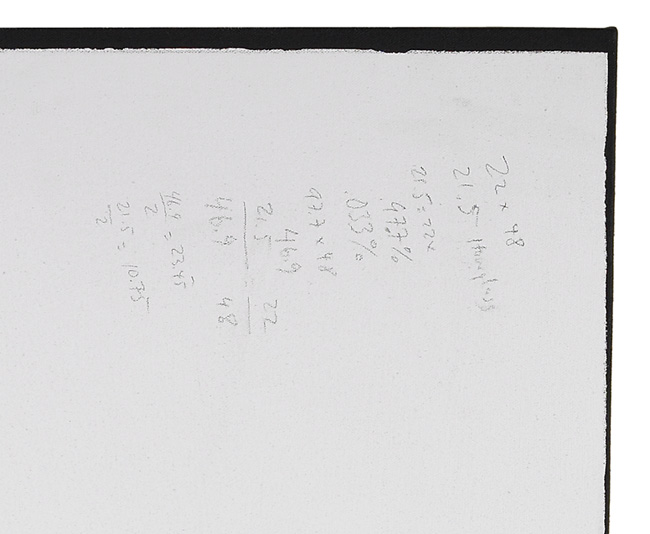 22 x 48
21.5
21.5 = 22x
.977%
.033%
97.7 x 48
46.9
21.5 22
46.9 48
46.9 = 23.45
2
21.5 = 10.75
2